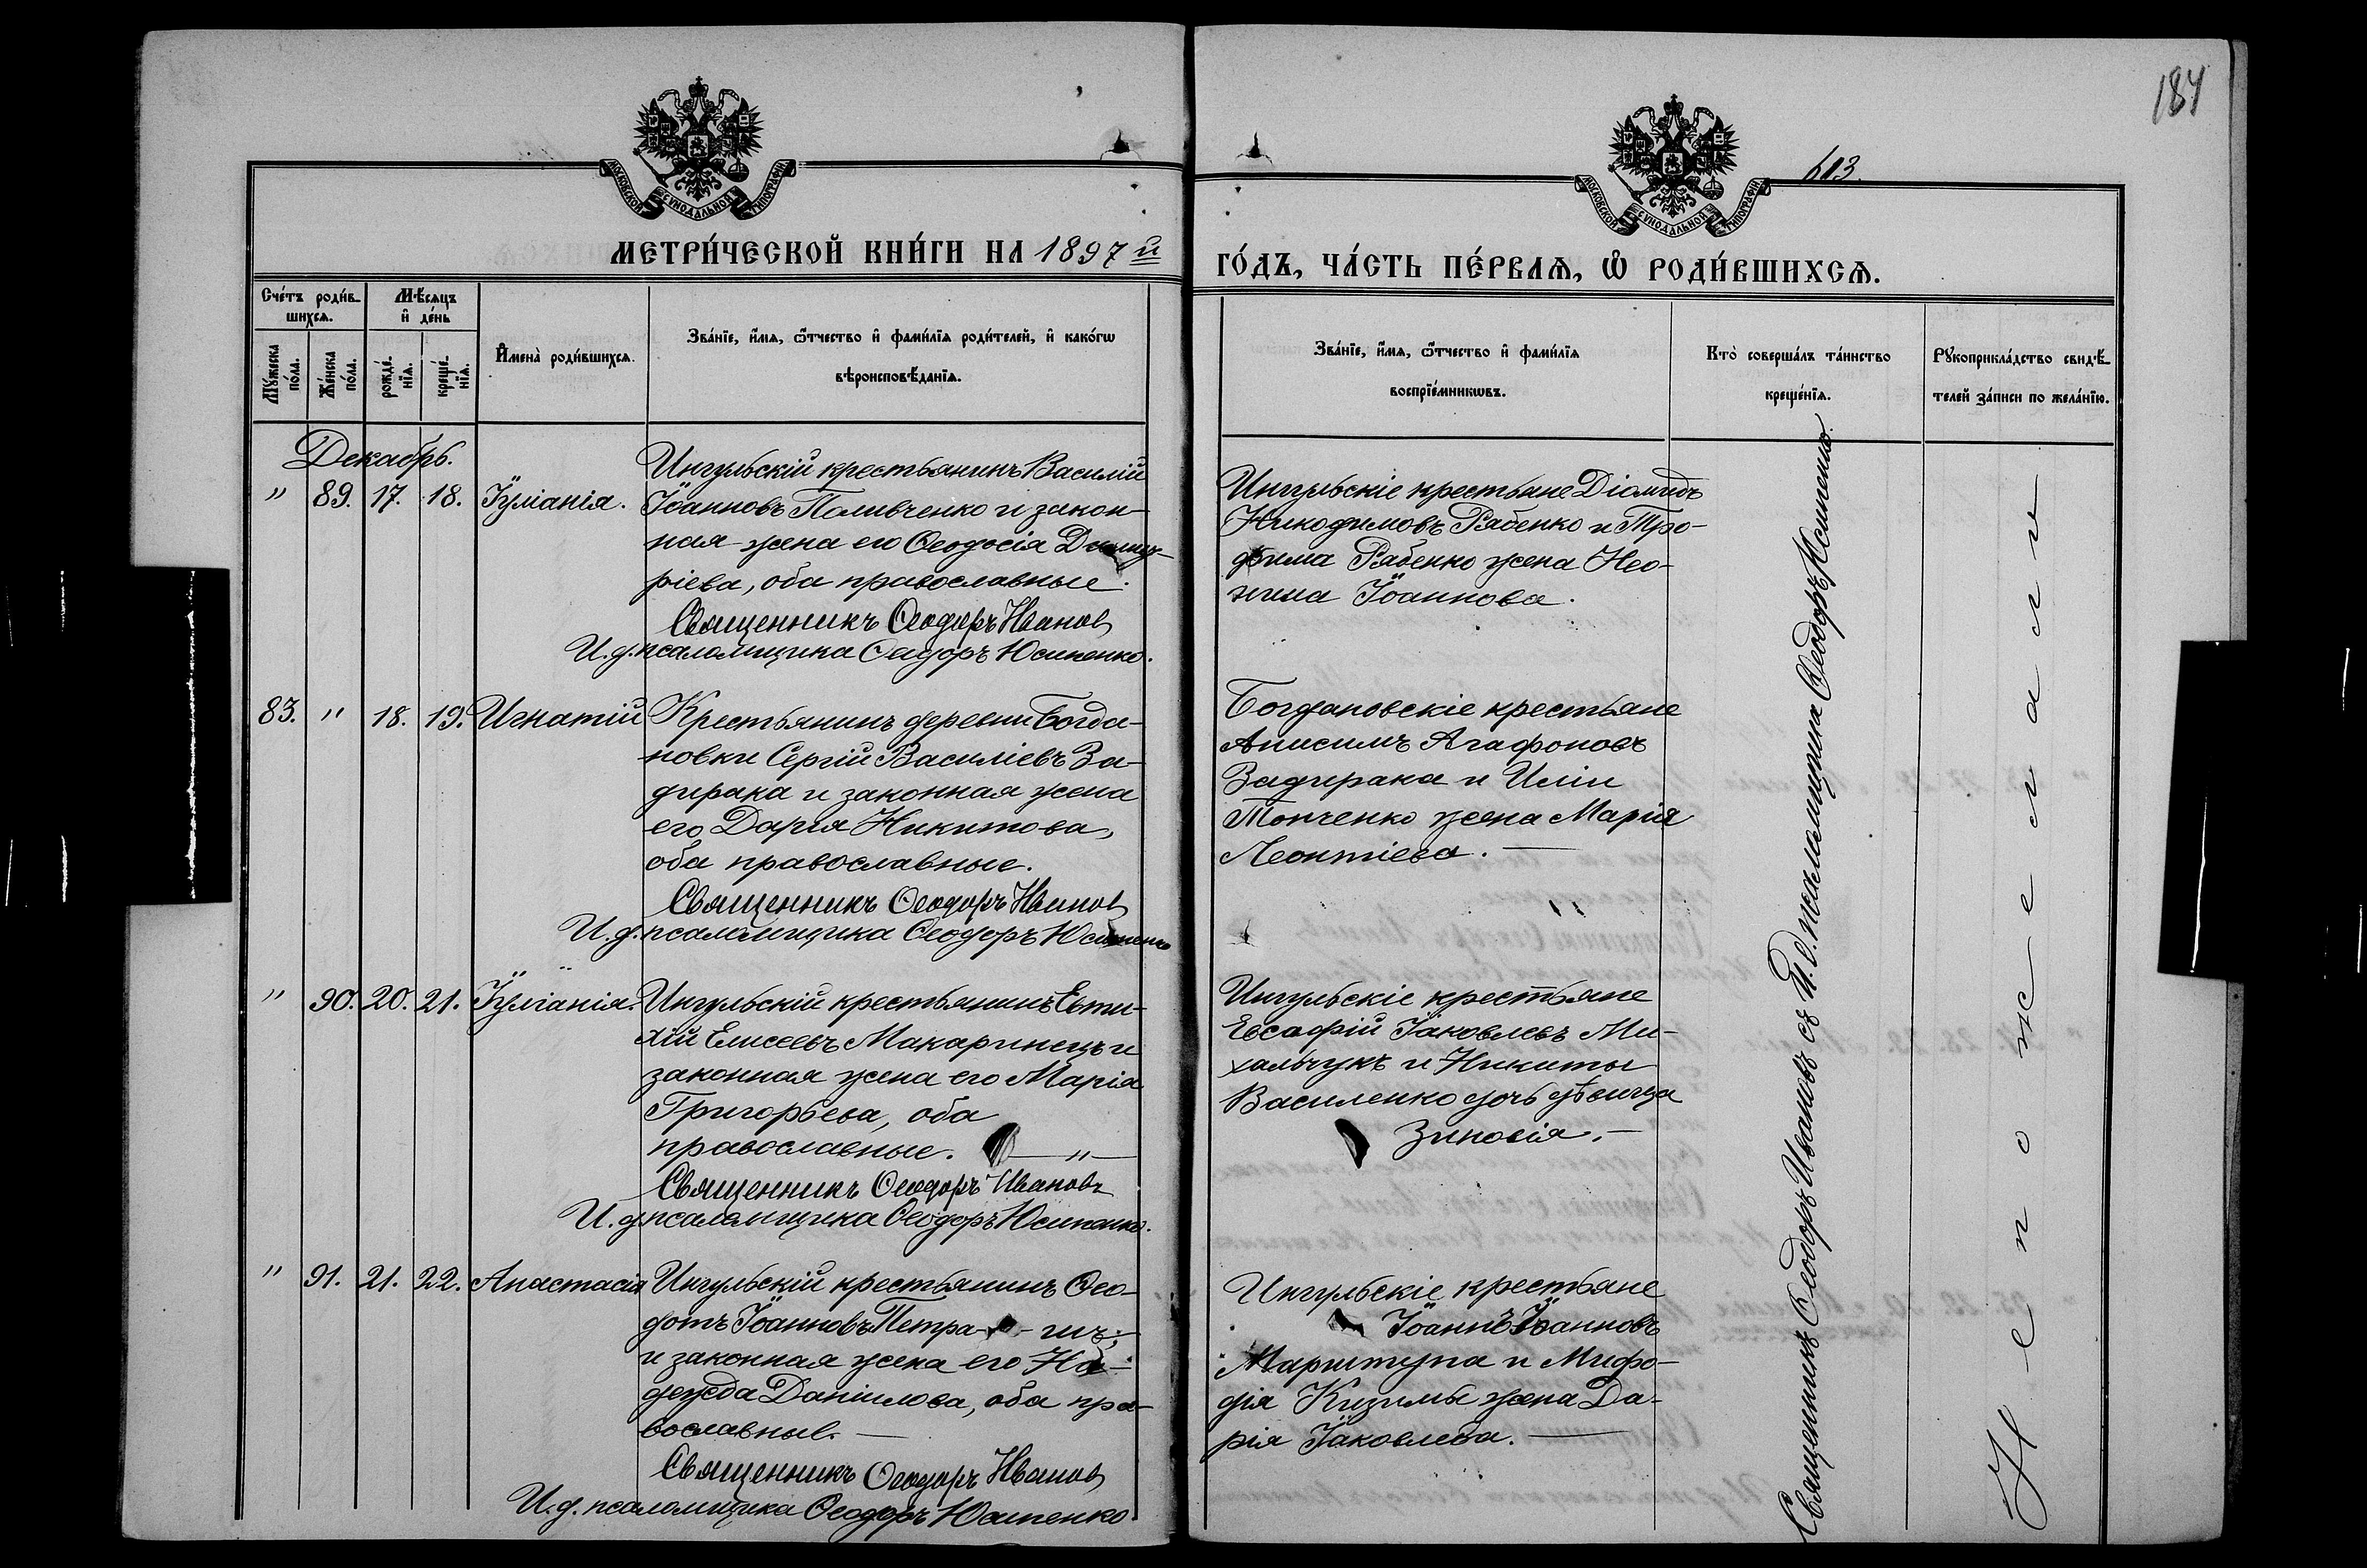 184
613.
МОСКОВСКОЙ СѴНОДАЛЬНОЙ ТИПОГРАФІИ
МОСКОВСКОЙ СѴНОДАЛЬНОЙ ТИПОГРАФІИ
МЕТРИ́ЧЕСКОЙ КНИ́ГИ НА 1897 й
ГО́ДЪ, ЧА́СТЬ ПЕ́РВАѦ, Ѽ РОДИ́ВШИХСѦ.
Сче́тъ роди́в-
шихсѧ.
Мѣ́сѧцъ
и҆ де́нь
Мꙋ́жеска
по́ла.
Же́нска
по́ла.
рожде́-
нїѧ.
креще́-
нїѧ.
И҆мена̀ роди́вшихсѧ.
Зва́нїе, и҆́мѧ, ѻ҆́тчество и҆ фами́лїѧ роди́телей, и҆ како́гѡ
вѣроисповѣ́данїѧ.
Зва́нїе, и҆́мѧ, ѻ҆́тчество и҆ фами́лїѧ
воспрїе́мникѡвъ.
Кто̀ соверша́лъ та́инство
креще́нїѧ.
Рꙋкоприкла́дство свидѣ́-
телей за́писи по жела́нїю.
Декабрь.
" 89. 17. 18. Іуліанія.
Ингульскій крестьянинъ Василій
Іоанновъ Поливченко и закон-
ная жена его Ѳеодосія Димит-
ріева, оба православные.
Священникъ Ѳеодоръ Иванов
И.д. псаломщика Ѳеодоръ Юсипенко.
Ингульскіе крестьяне Діомидъ
Никодимовъ Рябенко и Тро-
фима Рябенко жена Нео-
нила Іоаннова.
83. " 18. 19. Игнатій
Крестьянинъ деревни Богда-
новки Сергій Василіевъ За-
дирака и законная жена
его Дарія Никитова,
оба православные.
Священникъ Ѳеодоръ Иванов
И.д. псаломщика Ѳеодоръ Юсипенко
Богдановскіе крестьяне
Анисимъ Агафоновъ
Задирака и Иліи
Топченко жена Марія
Леонтіева.
" 90. 20. 21. Іуліанія.
Ингульскій крестьянинъ Евти-
хій Елисеевъ Макаринецъ и
законная жена его Марія
Григорьева, оба
православные. "
Священникъ Ѳеодоръ Ивановъ
И.д. псаломщика Ѳеодоръ Юсипенко.
Ингульскіе крестьяне
Евсафій Іаковлевъ Ми-
хальчукъ и Никиты
Василенко дочь дѣвица
Зиновія.
" 91. 21. 22. Анастасія
Ингульскій крестьянинъ Ѳео-
дотъ Іоанновъ
и законная жена его На-
дежда Даніилова, оба пра-
вославные.
Священникъ Ѳеодоръ Иванов
И.д. псаломщика Ѳеодоръ Юсипенко
Ингульскіе крестьяне
Іоаннъ Іоанновъ
и Мифо-
дія Кизимы жена Да-
рія Іаковлева.
Священникъ Ѳеодоръ Ивановъ съ И.д. псаломщика Ѳеодоръ Юсипенко.
Не пожелали